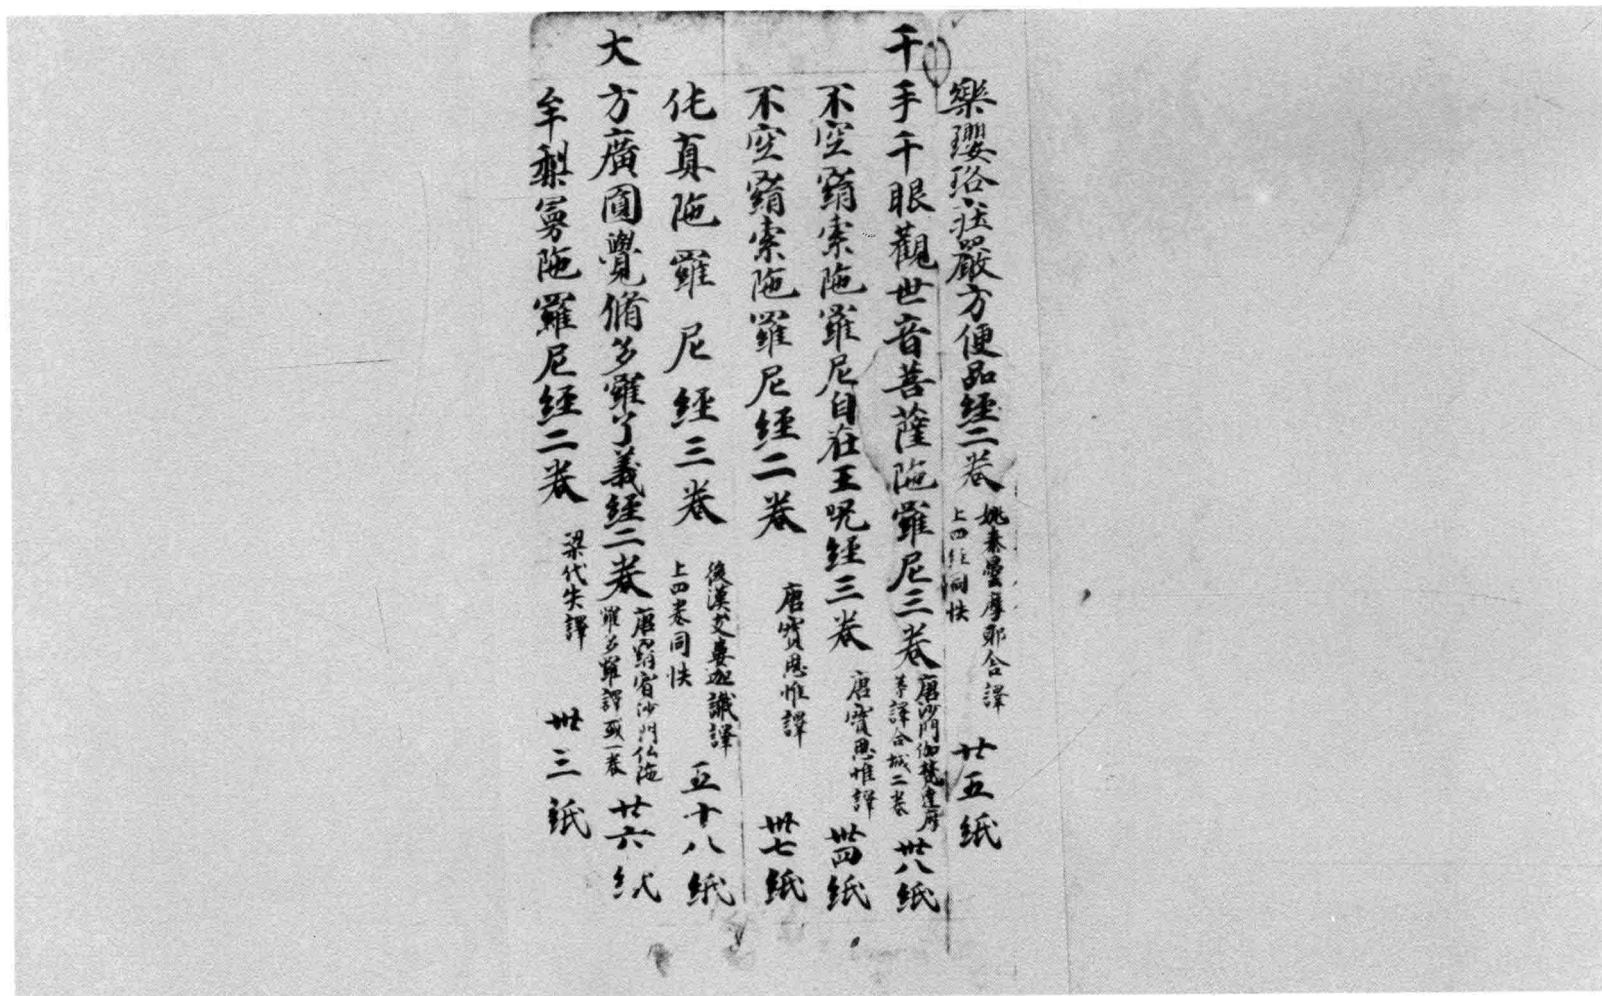 樂瓔珞莊嚴方便品經二卷 姚秦曇摩耶舍譯 上四經同帙 廿五紙
千手千眼觀世音菩薩陁羅尼三卷 唐沙門伽梵達摩等譯合城二卷 卅八紙
不空羂索陁羅尼自在王呪經三卷 唐寶思惟譯 卌四紙
不空羂索陁羅尼經二卷 唐寶思惟譯 卌七紙
伅真陁羅尼經三卷 後漢支婁迦讖譯 上四卷同帙 五十八紙
大方廣圓覺脩多羅了義經二卷 唐罽賓沙門仏陁多羅譯或一卷 廿六紙
牟梨曼陁羅尼經二卷 梁代失譯 卅三紙